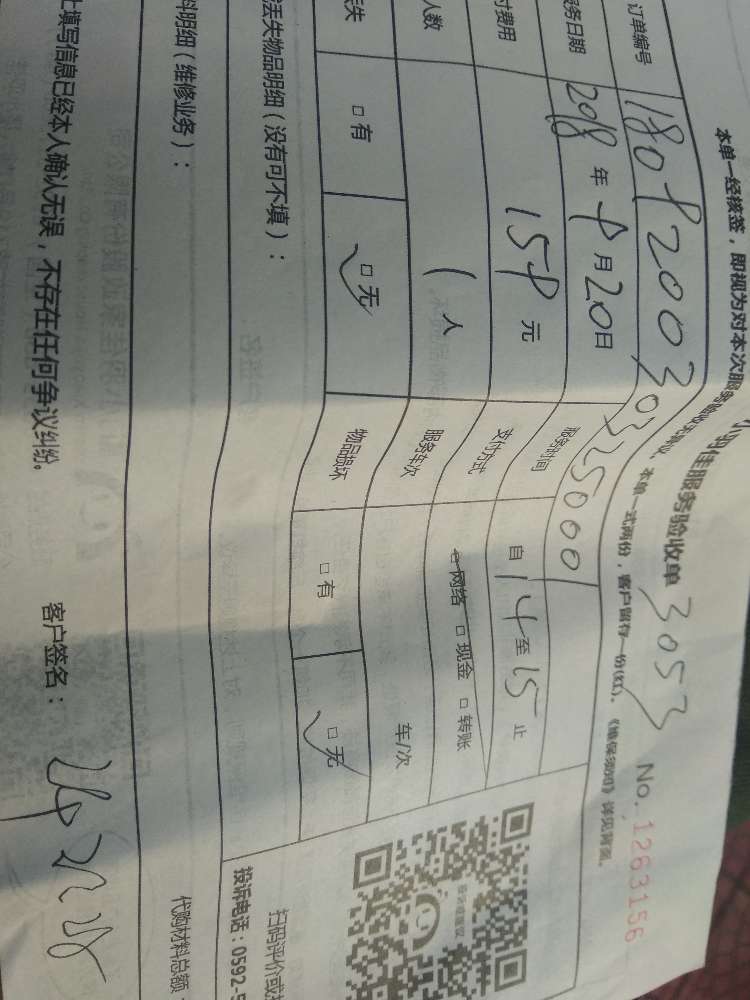 佳服务验收单 3053
No. 1263156
本单一经核签，即视为对本次服务
本单一式两份，客户留存一份(红)。《维保须知》详见背面。
订单编号 18092003035000
务日期 2018 年 9 月 20 日 服务时间 自 14 至 15 止
付费用 159 元 支付方式 □ 网络 □ 现金 □ 转账
人数 1 人 服务车次 车/次
丢失 □ 有 □ 无 物品损坏 □ 有 □ 无
丢失物品明细（没有可不填）：
料明细（维修业务）：
代购材料总额
填写信息已经本人确认无误，不存在任何争议纠纷。 客户签名：
扫码评价或
投诉电话：0592-5